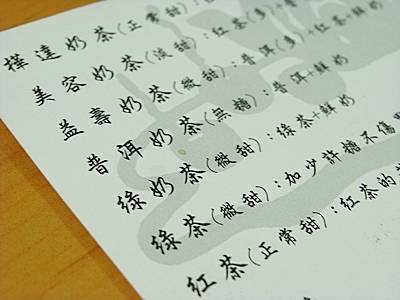 樺達奶茶(正常甜):
美容奶茶(淡甜):紅茶(多)+普
益壽奶茶(微甜):普洱(多)+紅茶+鮮
普洱奶茶(無糖):普洱+鮮奶
綠奶茶(微甜):綠茶+鮮奶
綠茶(微甜):加少許糖不傷
紅茶(正常甜):紅茶的